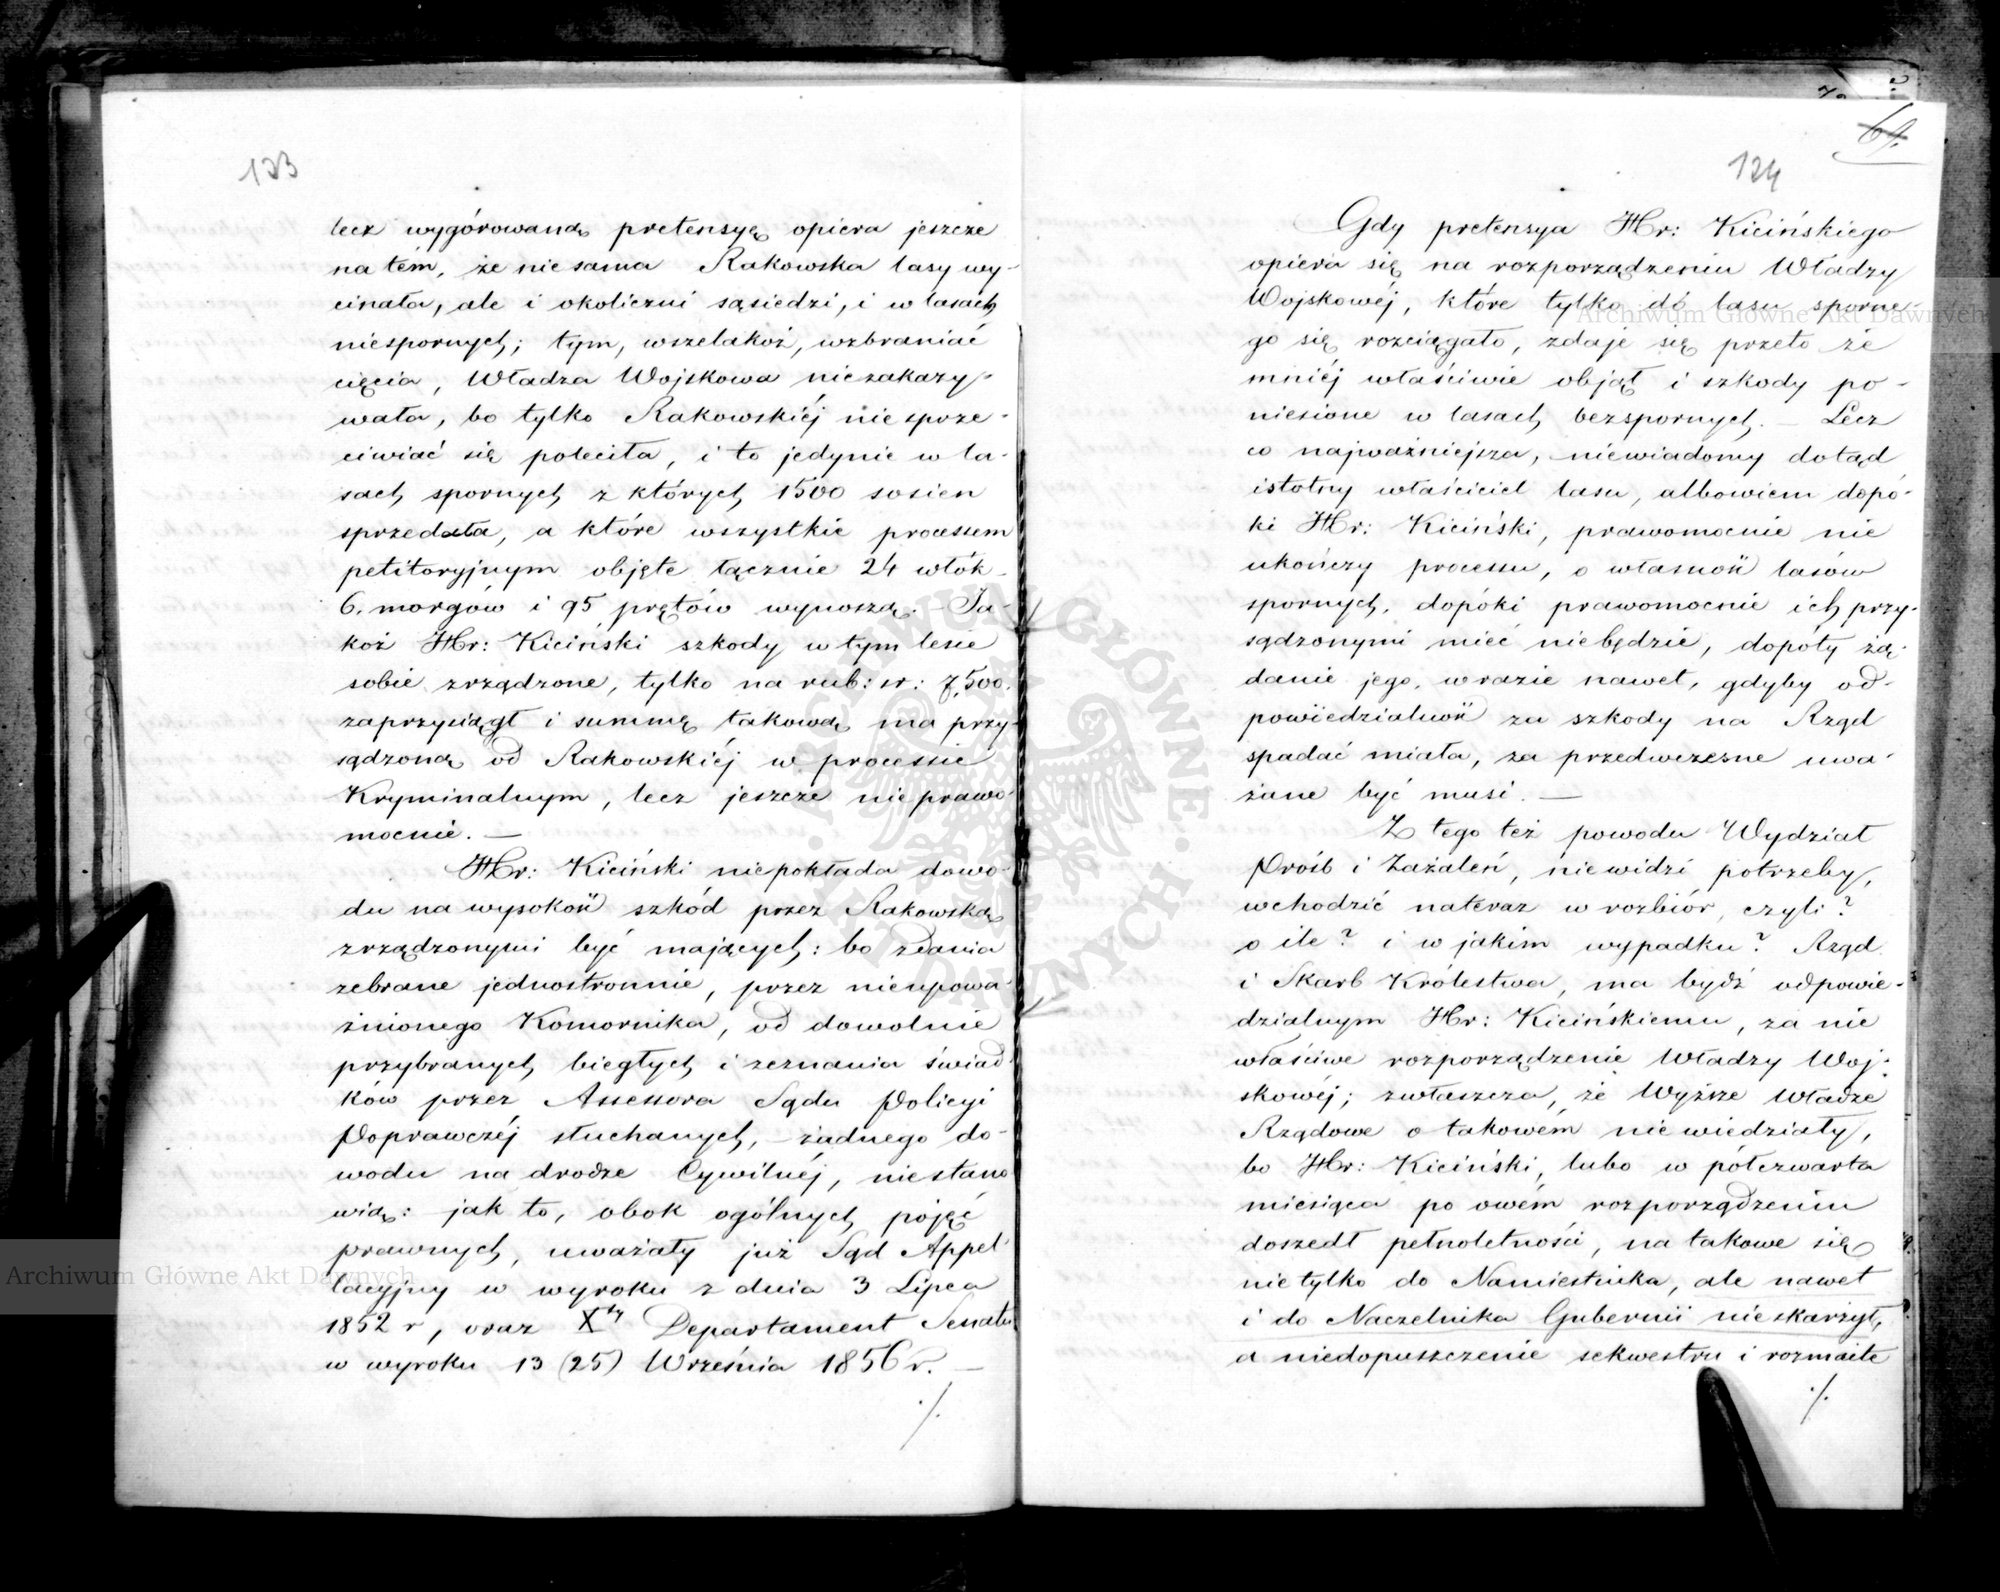 133
lecz wygórowaną pretensyę opiera jeszcze
na tém, że nie sama Rakowska lasy wy-
cinała, ale i okoliczni sąsiedzi, i w lasach
niespornych; tym, wszelakoż, wzbraniać
cięcia, Władza Wojskowa niezakazy-
wała, bo tylko Rakowskiéj nie sprze-
ciwiać się poleciła, i to jedynie w la-
sach spornych z których 1500 sosien
sprzedała, a które wszystkie processem
petitoryjnym objęte łącznie 24 włók
6. morgów i 95 prętów wynoszą. – Ja-
koż Hr: Kiciński szkody w tym lesie
sobie zrządzone, tylko na rub: sr: 7,500.
zaprzysiągł i summę takową ma przy-
sądzoną od Rakowskiéj w processie
Kryminalnym, lecz jeszcze nieprawo-
mocnie. —
Hr: Kiciński niepokłada dowo-
du na wysokość szkód przez Rakowską
zrządzonymi być mających: bo zdania
zebrane jednostronnie, przez nieupowa-
żnionego Komornika, od dowolnie
przybranych biegłych i zeznania świad-
ków przez Assessora Sądu Policyi
Poprawczéj słuchanych, – żadnego do-
wodu na drodze Cywilnéj, niestano-
wią: jak to, obok ogólnych pojęć
prawnych, uważały już Sąd Appel-
lacyjny w wyroku z dnia 3 Lipca
1852 r, oraz Xty Departament Senatu
w wyroku 13 (25) Września 1856 r. —
./.
64.
134
Gdy pretensya Hr: Kicińskiego
opiera się na rozporządzeniu Władzy
Wojskowéj, które tylko dó lasu sporne-
go się rozciągało, zdaje się przeto że
mniéj właściwie objął i szkody po-
niesione w lasach bezspornych. – Lecz
co najważniejsza, niewiadomy dotąd
istotny właściciel lasu, albowiem dopó-
ki Hr: Kiciński, prawomocnie nie
ukończy processu, o własność lasów
spornych, dopóki prawomocnie ich przy-
sądzonymi mieć niebędzie, dopóty żą-
danie jego, w razie nawet, gdyby od-
powiedzialność za szkody na Rząd
spadać miała, za przedwczesne uwa-
żane być musi. —
Z tego też powodu Wydział
Próśb i Zażaleń, niewidzi potrzeby,
wchodzić nateraz w rozbiór, czyli?
o ile? i w jakim wypadku? Rząd
i Skarb Królestwa, ma bydź odpowie-
dzialnym Hr: Kicińskiemu, za nie
właściwe rozporządzenie Władzy Woj-
skowéj; zwłaszcza, że Wyższe Władze
Rządowe o takowém nie wiedziały,
bo Hr: Kiciński, lubo w półczwarta
miesiąca po owém rozporządzeniu
doszedł pełnoletności, na takowe się
nie tylko do Namiestnika, ale nawet
i do Naczelnika Gubernii nie skarżył,
a niedopuszczenie sekwestru i rozmaite
./.
Archiwum Główne Akt Dawnych
Archiwum Główne Akt Dawnych
ARCHIWUM GŁÓWNE AKT DAWNYCH